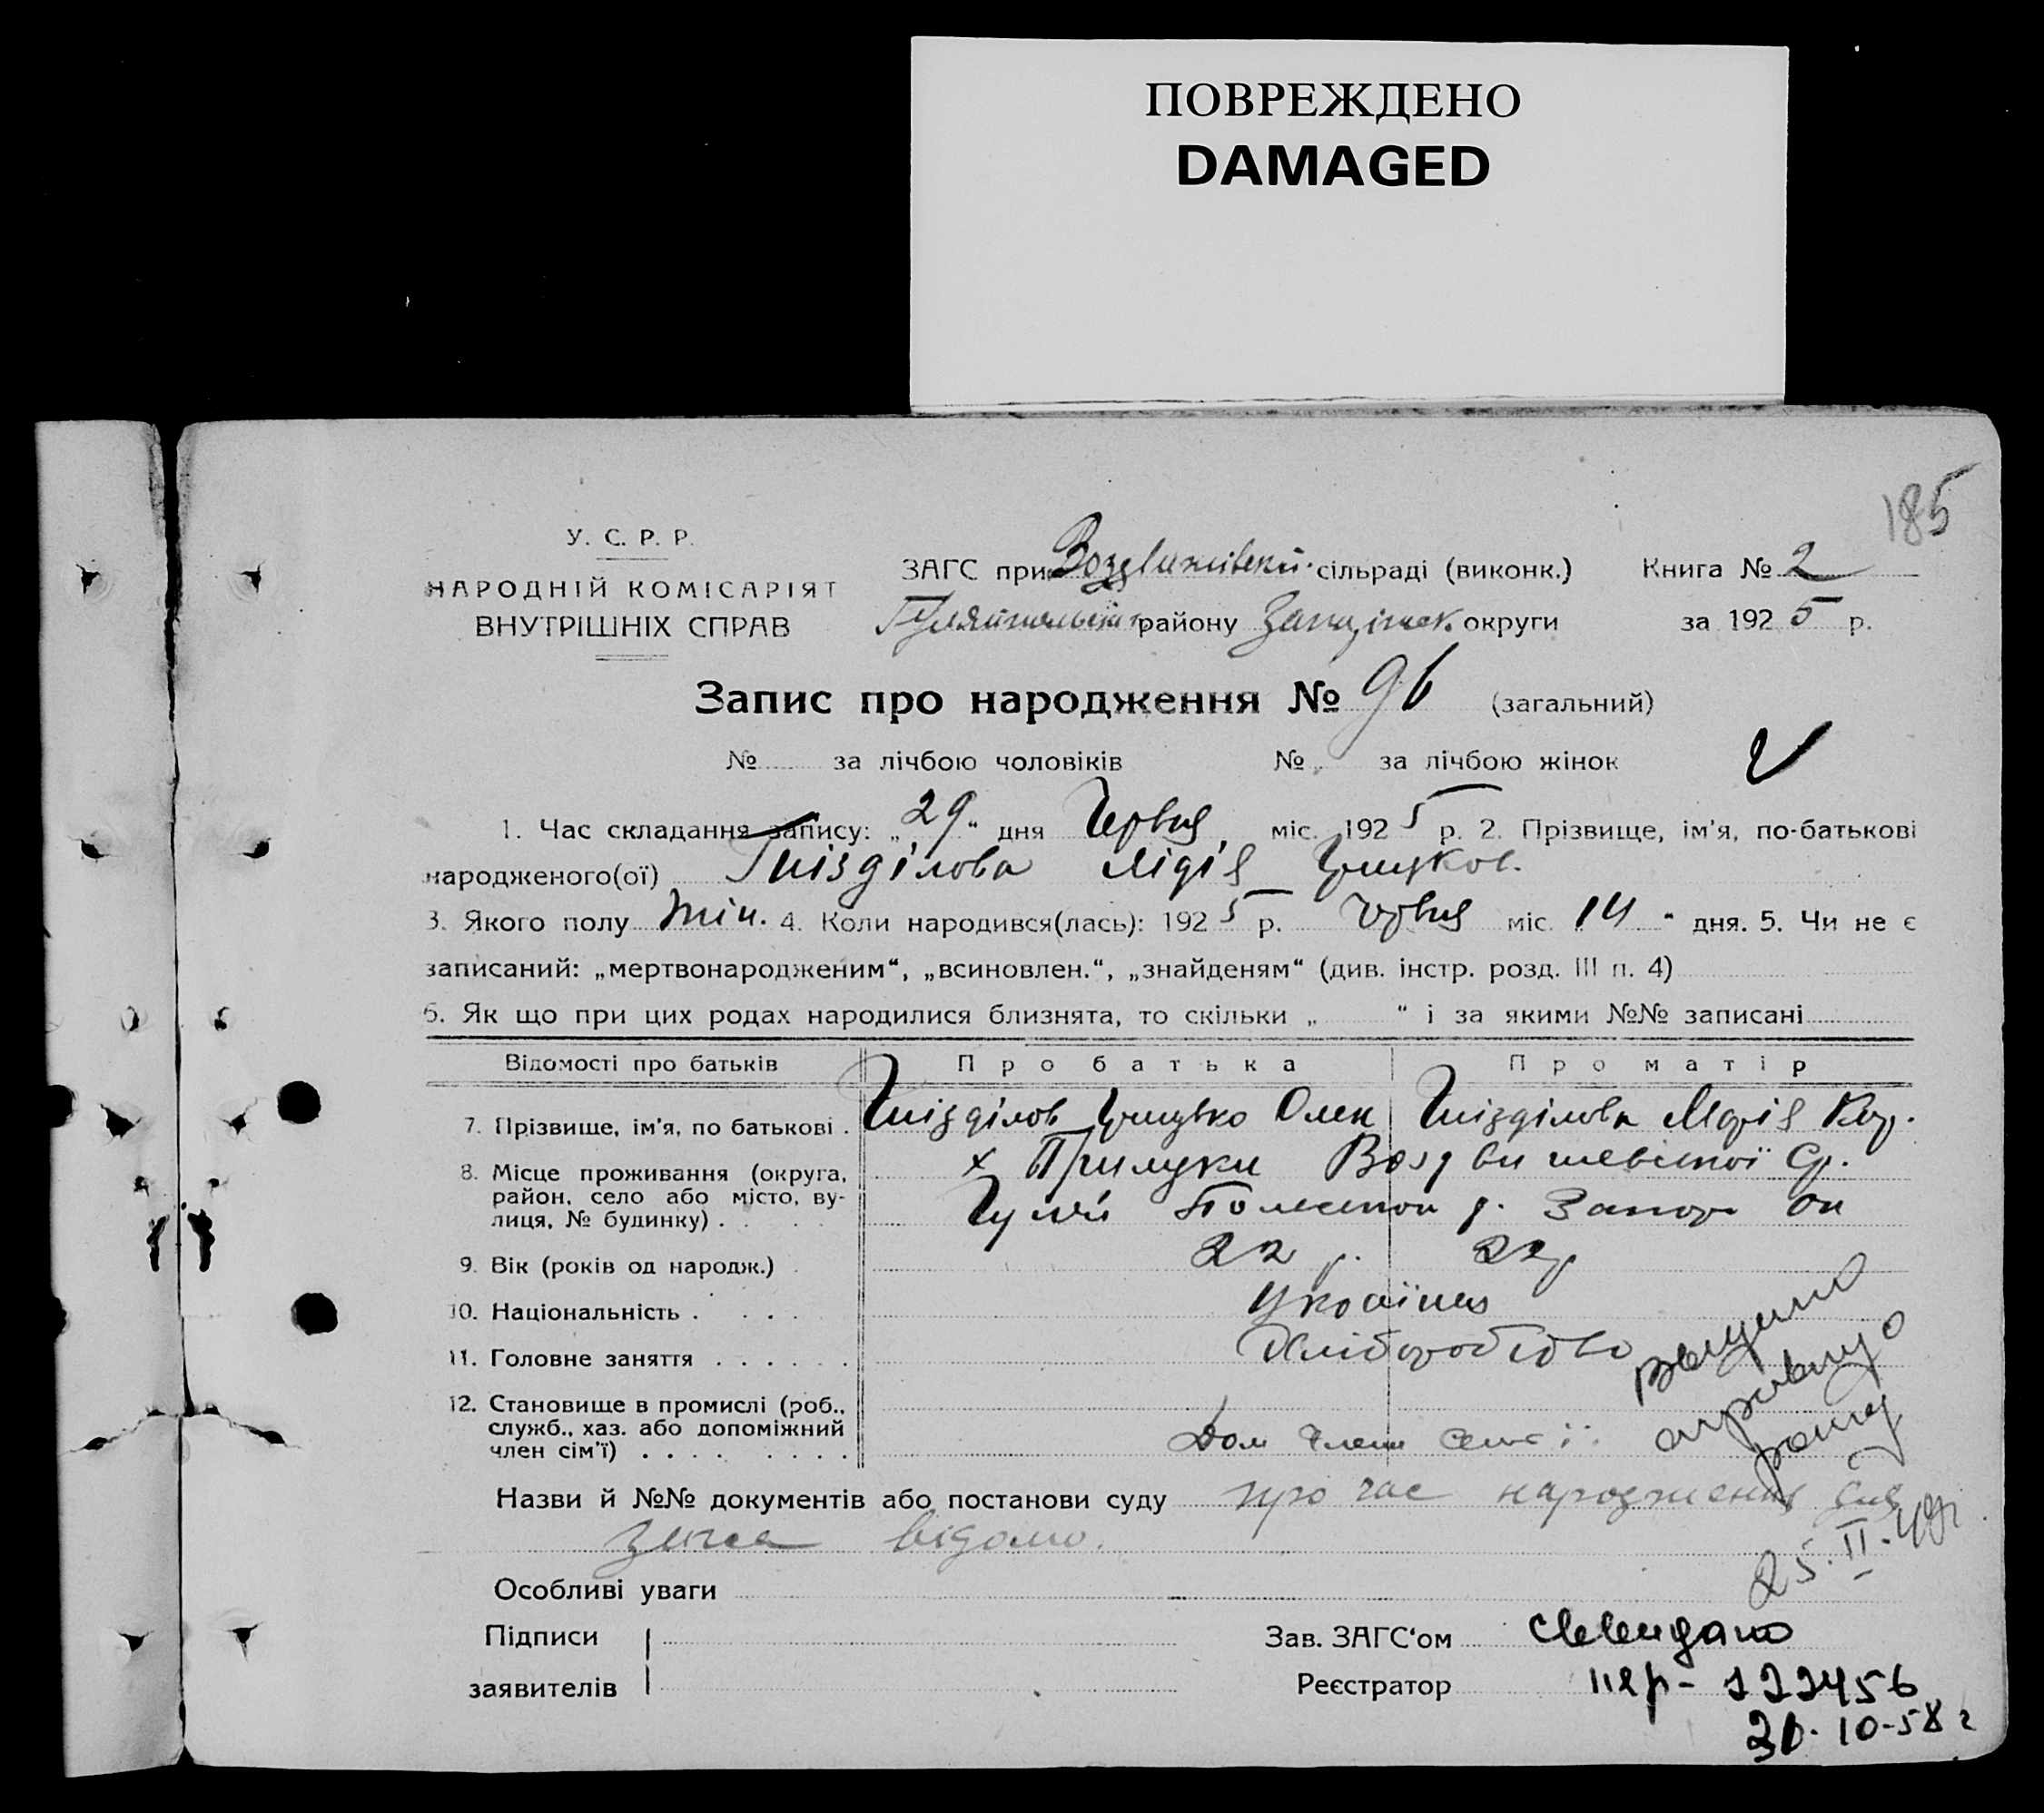 ПОВРЕЖДЕНО
DAMAGED
185
У. С. Р. Р.
НАРОДНІЙ КОМІСАРІЯТ
ВНУТРІШНІХ СПРАВ
ЗАГС при сільраді (виконк.) Книга № 2
району округи за 1925 р.
Запис про народження № 96 (загальний)
№ за лічбою чоловіків № за лічбою жінок
1. Час складання запису: „29“ дня Червня міс. 1925 р. 2. Прізвище, ім'я, по-батькові
народженого(ої) Гнізділова Лідія
3. Якого полу жін. 4. Коли народився(лась): 1925 р. Червня міс. 14 “ дня. 5. Чи не є
записаний: „мертвонародженим“, „всиновлен.“, „знайденям“ (див. інстр. розд. III п. 4)
6. Як що при цих родах народилися близнята, то скільки „ “ і за якими №№ записані
Відомості про батьків Про батька Про матір
7. Прізвище, ім'я, по батькові . Гнізділов Грицько Олек Гнізділова Марія
8. Місце проживання (округа, х Прилуки
район, село або місто, ву-
лиця, № будинку) . Гуляй Запор ок
9. Вік (років од народж.) 22 р. 22 р
10. Національність . Українці
11. Головне заняття Хліборобство
12. Становище в промислі (роб.,
служб., хаз. або допоміжний
член сім'ї) Дом члени
Назви й №№ документів або постанови суду про час народження
відомо.
25.II.49г
Особливі уваги
Підписи Зав. ЗАГС'ом
заявителів Реєстратор
30-10-58 г